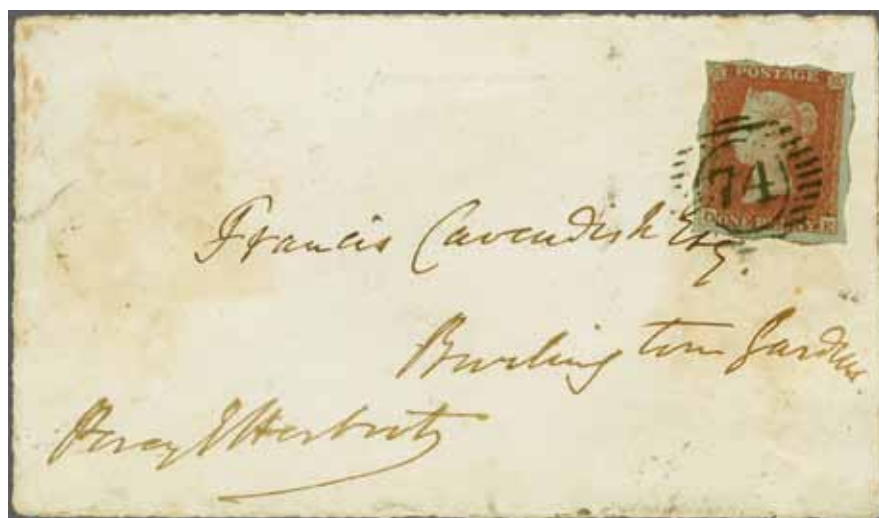 POSTAGE
74
ONE PENNY
Francis Cavendish Esq.
Burlington Gardens
Percy E Herbert